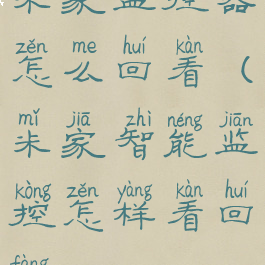 米家监控器
zěn me huí kàn
怎么回看（
mǐ jiā zhì néng jiān
米家智能监
kòng zěn yàng kàn huí
控怎样看回
fàng